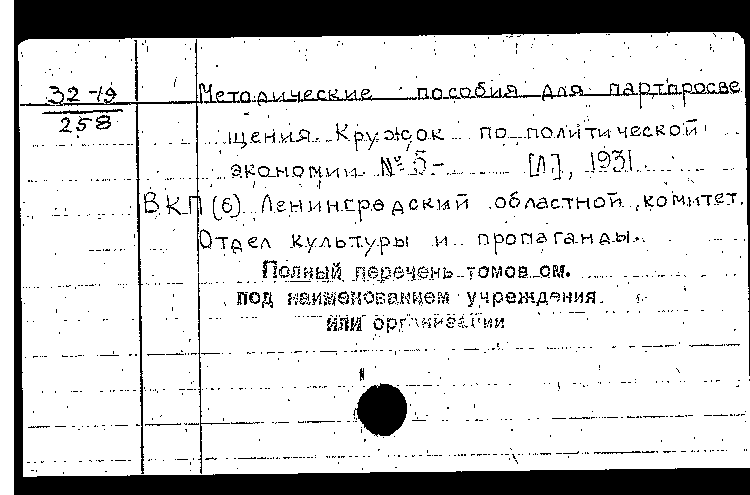 32-19
258
Методические пособия для партпросве
щения. Кружок по политической
экономии. № 5- [Л], 1931.
ВКП(б) Ленинградский областной комитет.
Отдел культуры и пропаганды.
Полный перечень томов см.
под наименованием учреждения
или организации